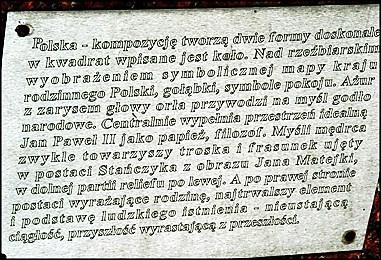 Polska - kompozycję tworzą dwie formy doskonałe
w kwadrat wpisane jest koło. Nad rzeźbiarskim
wyobrażeniem symbolicznej mapy kraju
rodzinnego Polski, gołąbki, symbole pokoju. Ażur
z zarysem głowy orła przywodzi na myśl godło
narodowe. Centralnie wypełnia przestrzeń idealną
Jan Paweł II jako papież, filozof. Myśli mędrca
zwykle towarzyszy troska i frasunek ujęty
w postaci Stańczyka z obrazu Jana Matejki,
w dolnej partii reliefu po lewej. A po prawej stronie
postaci wyrażające rodzinę, najtrwalszy element
i podstawę ludzkiego istnienia - nieustającą
ciągłość, przyszłość wyrastającą z przeszłości.